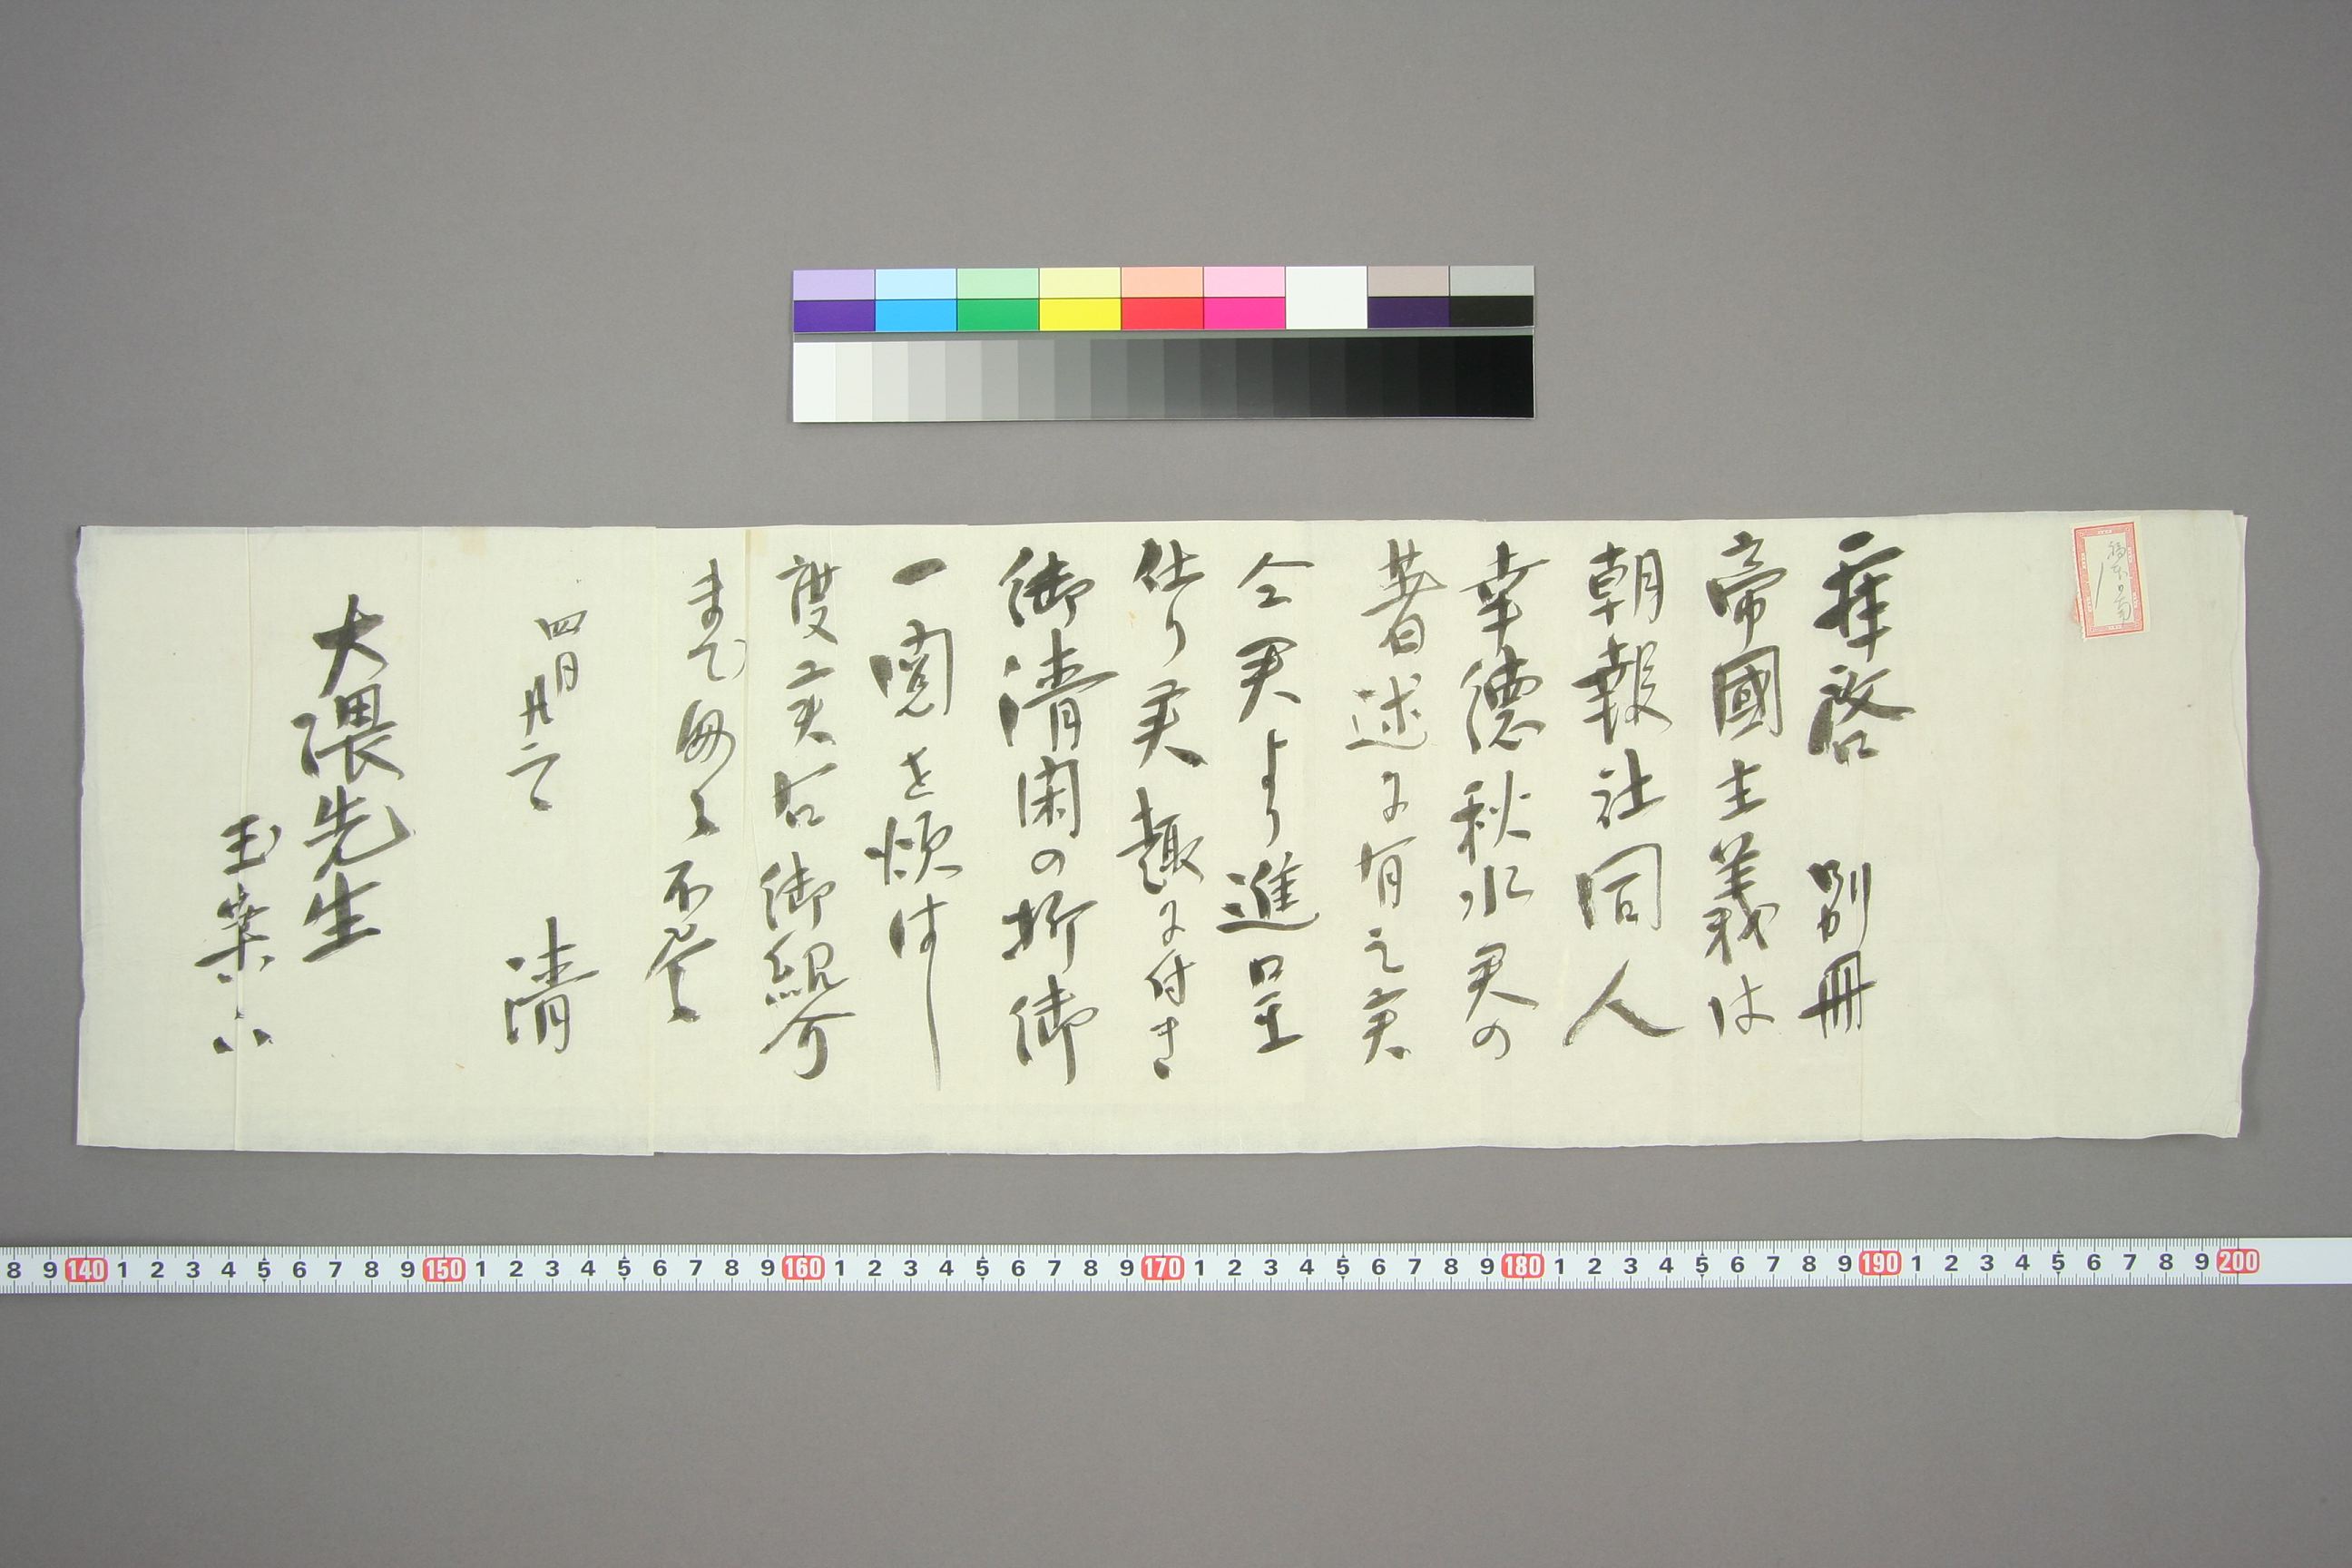 拝啓 別冊
帝國主義は
朝報社同人
幸徳秋水君の
著述に有之実
仝君より進呈
仕り実趣に付き
御清閑の折御
一閲を煩はし
度実右御紹介
まで匆々不尽
四月廿二
清
大隈先生
玉案下
8 9 140 1 2 3 4 5 6 7 8 9 150 1 2 3 4 5 6 7 8 9 160 1 2 3 4 5 6 7 8 9 170 1 2 3 4 5 6 7 8 9 180 1 2 3 4 5 6 7 8 9 190 1 2 3 4 5 6 7 8 9 200